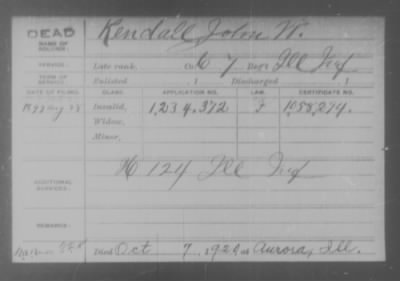 DEAD
NAME OF SOLDIER:
Kendall, John W.
SERVICE:
Late rank, Co. C 7 Reg't Ill Inf
TERM OF SERVICE:
Enlisted , 1 Discharged , 1
DATE OF FILING. CLASS. APPLICATION NO. LAW. CERTIFICATE NO.
Aug Invalid, 1,234,372 1,058,274.
Widow,
Minor,
ADDITIONAL SERVICES:
H 124 Ill Inf
REMARKS:
Died Oct 7, 1920 at Aurora, Ill.